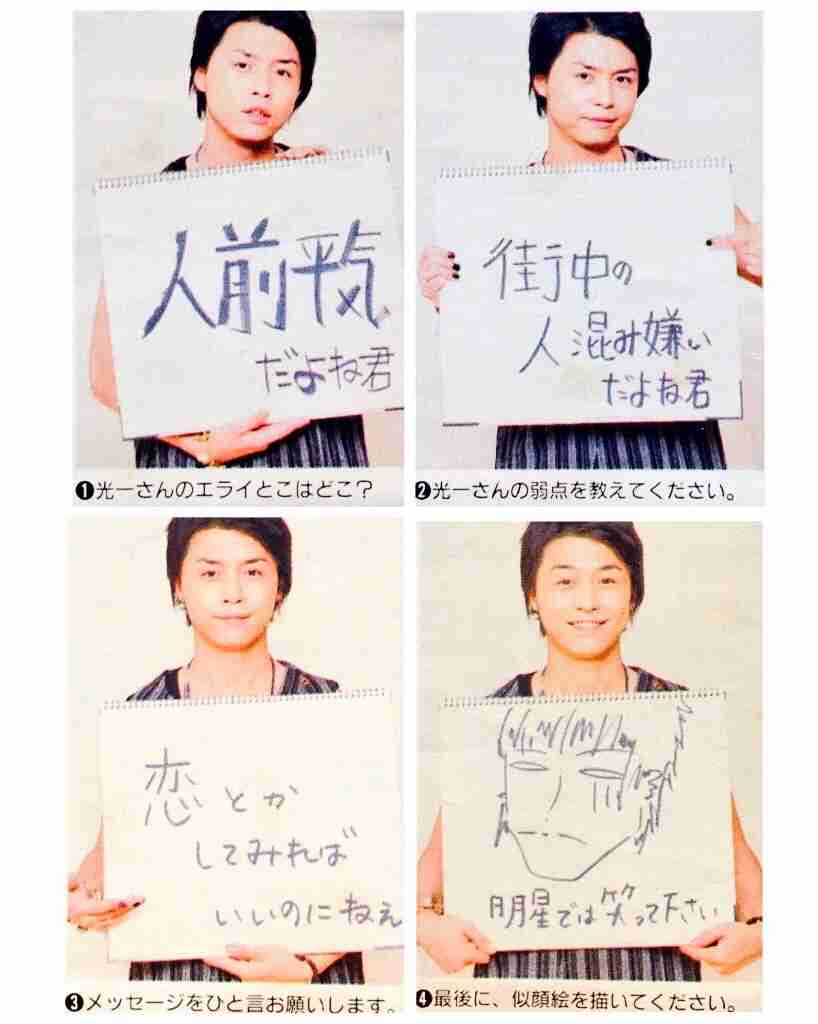 人前平気
だよね君
❶光一さんのエライとこはどこ？
街中の
人混み嫌い
だよね君
❷光一さんの弱点を教えてください。
恋とか
してみれば
いいのにねぇ
❸メッセージをひと言お願いします。
明星では笑って下さい
❹最後に、似顔絵を描いてください。